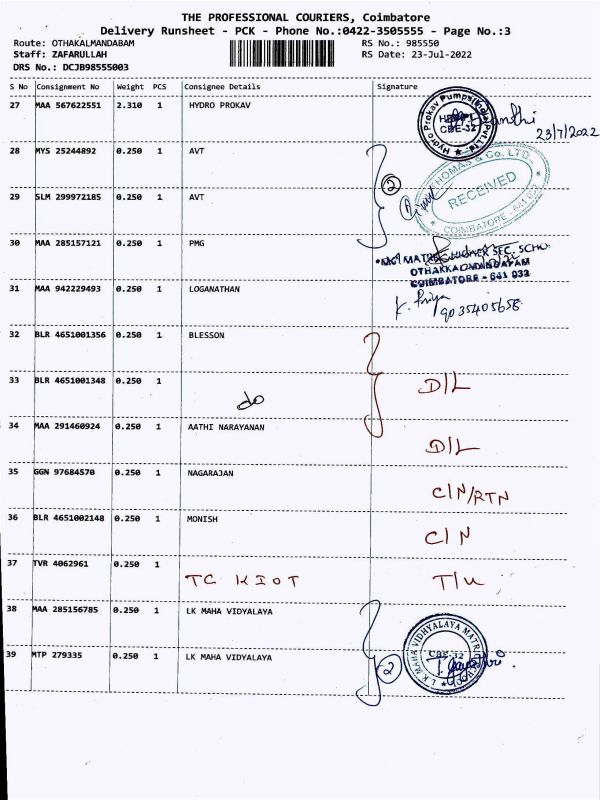 THE PROFESSIONAL COURIERS, Coimbatore
Delivery Runsheet - PCK - Phone No.:0422-3505555 - Page No.:3
Route: OTHAKALMANDABAM RS No.: 985550
Staff: ZAFARULLAH RS Date: 23-Jul-2022
DRS No.: DCJB98555003
S No Consignment No Weight PCS Consignee Details Signature
27 MAA 567622551 2.310 1 HYDRO PROKAV
Hydro Prokav Pumps(India)Pvt.Ltd.
CBE-32
23/7/2022
28 MYS 25244892 0.250 1 AVT
2
THOMAS & Co. LTD.
RECEIVED
COIMBATORE - 641 032
29 SLM 299972185 0.250 1 AVT
30 MAA 285157121 0.250 1 PMG
SEC. SCHO
OTHAKKALMANDAPAM
COIMBATORE - 641 032
31 MAA 942229493 0.250 1 LOGANATHAN
K. Priya
9035405658
32 BLR 4651001356 0.250 1 BLESSON
33 BLR 4651001348 0.250 1
do
D/L
34 MAA 291460924 0.250 1 AATHI NARAYANAN
D/L
35 GGN 97684570 0.250 1 NAGARAJAN
C/N/RTN
36 BLR 4651002148 0.250 1 MONISH
C/N
37 TVR 4062961 0.250 1
TC KIOT T/U
38 MAA 285156785 0.250 1 LK MAHA VIDYALAYA
LK MAHA VIDHYALAYA MATRIC
CBE-32
39 MTP 279335 0.250 1 LK MAHA VIDYALAYA
2